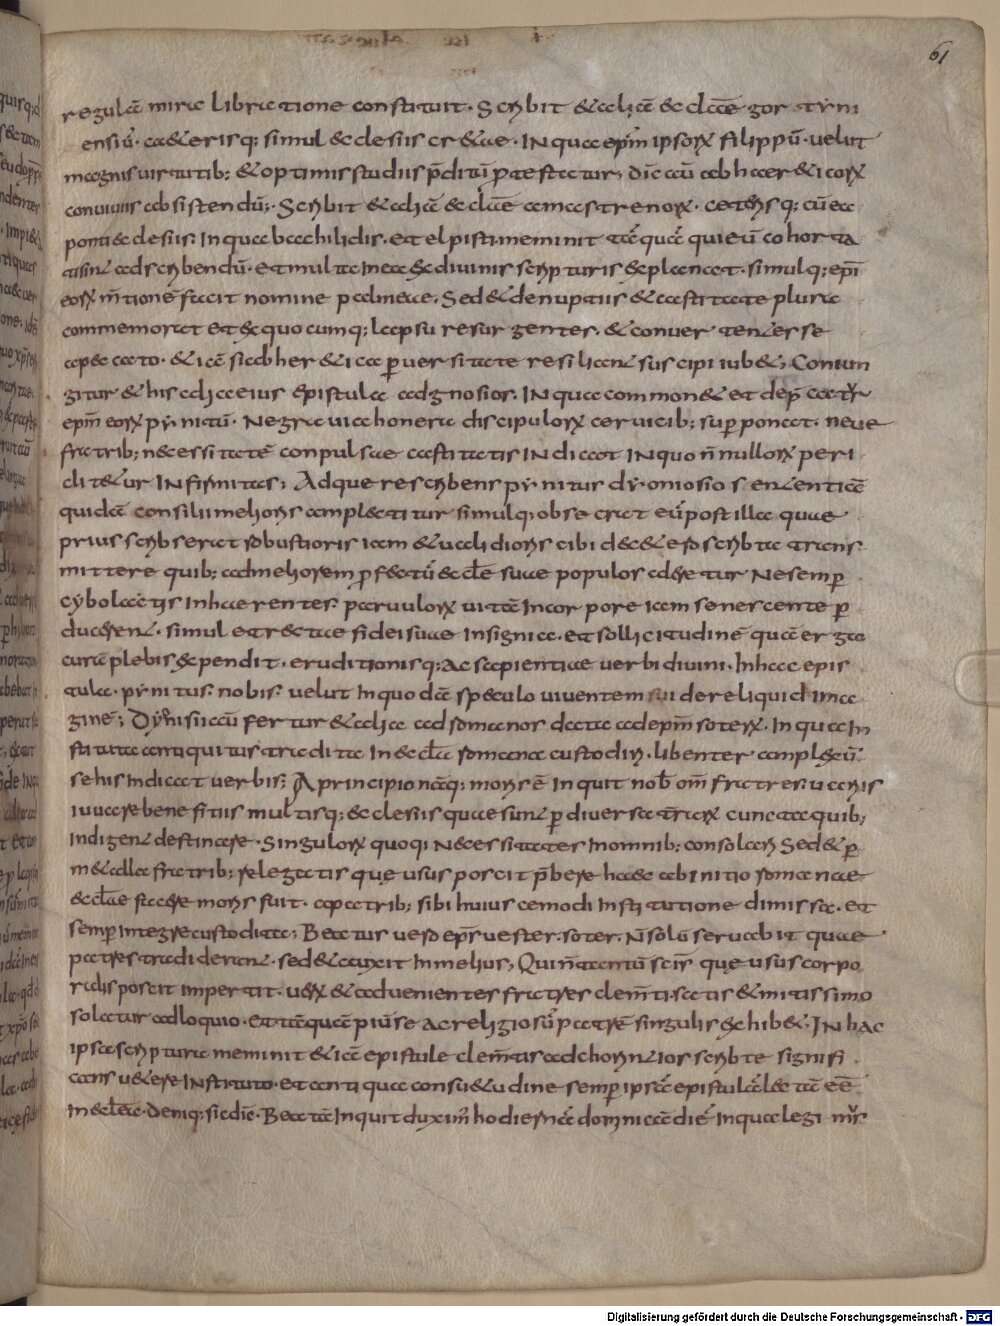 61
regulā mira libratione constituit. Scribit & aliā & ecclā gortyni
ensiū. ceterisq; simul ecclesiis cret&ae. In qua epm̄ ipsorꝝ filippū. uelut
magnis uirtutib; & optimis studiis p̄ditū protestatur, dicēdū ab her&icorꝝ
conuiuiis absistendū; Scribit & aliā ecclae amastrenorꝝ. ceterisq; cū ea
ponti ecclesiis. In qua bachilidis. et elpisti meminit tāquā qui eū cohorta
ti sint ad scribendū. et multa in ea de diuinis scripturis explanat. simulq; epi
eorꝝ mtionē facit nomine palmae. Sed & de nuptiis & castitate plura
commemorat et de quocumq; lapsu resurgentes. & conuertentes se
ap&cato. & iā si ab her&ica peruersitate resiliant suscipi iub&; Coniun
gitur & his alia eius epistula ad gnosios. In qua common& et dep̄catr
epm̄ eorꝝ pynitū. Ne grauia honera discipulorꝝ ceruicib; superponat. neue
fratrib; necessitatē conpulsae castitatis indicat in quo nnullorꝝ peri
clit&ur infirmitas; Ad que rescribens pynitur dyoniosio sententiā
quidā consilii melioris amplectitur simulq; obsecrat eū post illa quae
prius scribserat robustioris iam & ualidioris cibi d& & ero scribta trans
mittere quib; ad meliorem pfectū ecclae suae populos ad&tur Ne semp
cybo lactis inherentes. paruulorꝝ uitā in corpore iam senescente p
ducerent. simul et rectae fidei suae insignia. et sollicitudinē quā erga
curā plebis expendit. eruditionisq; ac sapientiae uerbi diuini. In hac epis
tula. pynitus nobis uelut in quodā speculo uiventem sui dereliquid ima
gine; Dynisii aū fertur & alia ad romanos data ad epm̄ soterē. In qua in
stituta antiquitus tradita in eccla romana custodiri. libenter amplexū
se his indicat uerbis; A principio nāq; moris ē inquit nob om̄ fratres uariis
iuuare beneficiis multisq; ecclesiis quae sunt p diuersa trarꝝ cuncta quib;
indigent destinare. Singulorꝝ quoq; necessitates in omnib; consolari Sed & p
m&alla fratrib; relegatis que usus poscit p̄bere hac & ab initio romanae
ecclae facere moris fuit. a patrib; sibi huiuscemodi institutione dimissa. et
semp integre custodita; Beatus uero eprs uester. soter. n̄ solū seruabit quae
patres tradiderant. sed & auxit in melius; Qui n̄ tantū scis que usus corpo
ralis poscit impertit. uerꝝ & aduenientes fratres clem̄tissatis & mitissimo
solatur adloquio. et tāquā pius ac religiosus patrē singulis exhib&. In hac
ipsa scriptura meminit & iā epistule clem̄tis ad chorintios scribte signifi
cans uetere instituto. et antiqua consu&udine semp ipsā epistulā lectā eē
in eccla. deniq; sic dic̄. Beatā inquit duximꝰ hodiernā dominicā diē in qua legi nr̄
Digitalisierung gefördert durch die Deutsche Forschungsgemeinschaft - DFG